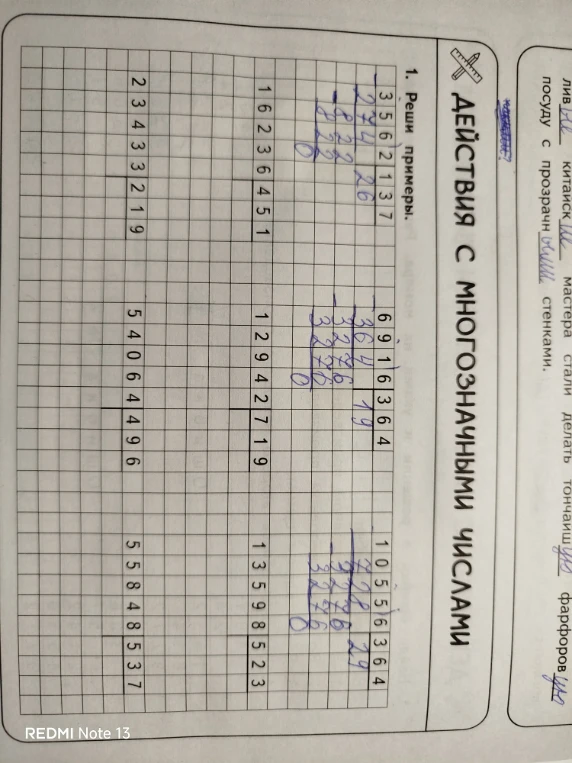 ливые китайские мастера стали делать тончайшую фарфоровую
посуду с прозрачными стенками.
ДЕЙСТВИЯ С МНОГОЗНАЧНЫМИ ЧИСЛАМИ
1. Реши примеры.
3562 137 6916 364 10556 364
274 26 364 19 728 29
822 3276 3276
822 3276 3276
0 0 0
16236 451 12942 719 13598 523
23433 219 54064 496 55848 537
REDMI Note 13